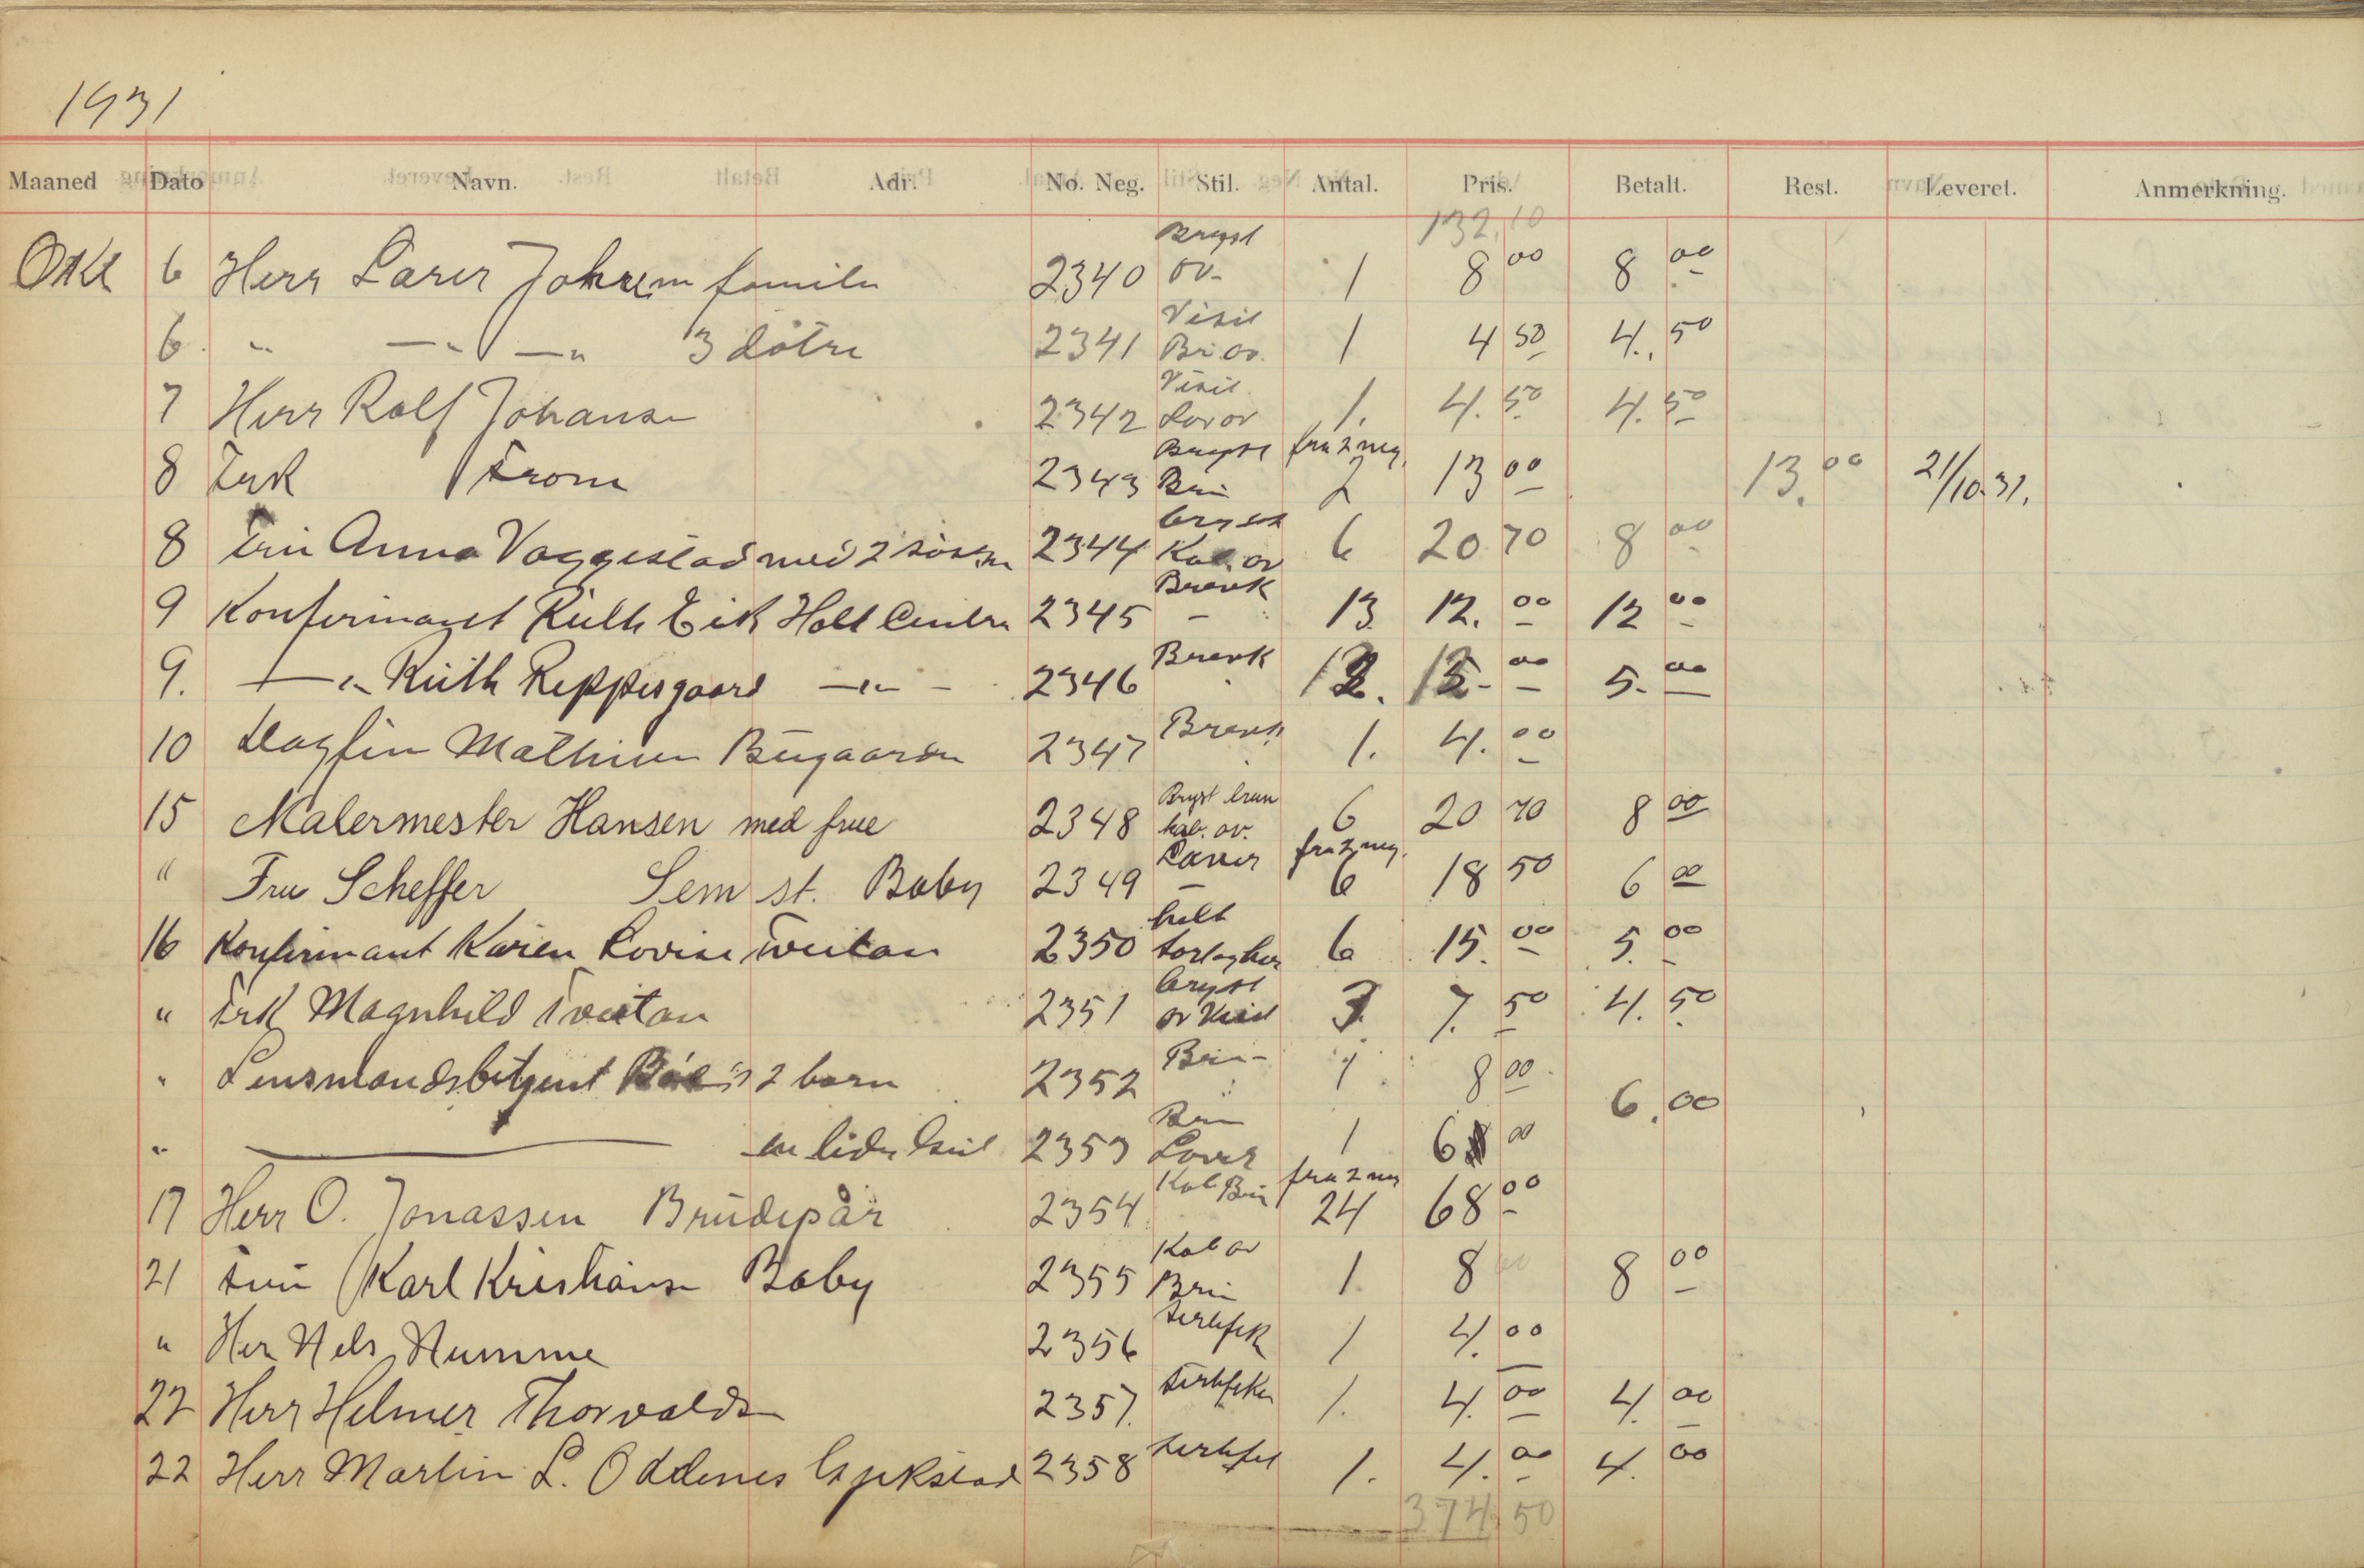 1931
Maaned Dato Navn. Adr. No. Neg. Stil. Antal. Pris. Betalt. Rest. Leveret. Anmerkning.
132,10
Okt 6 Herr Larer Johnsen 2340 Bryst ov- 1 8 00 8 00
6 " —"— —" 3 dötre 2341 Visit Br. ov. 1 4 50 4. 50
7 Herr Rolf Johansen 2342 Visit ov 1. 4. 50 4. 50
8 Frk 2343 Bryst Bri fra 2 neg. 2 13 00 13. 00 21/10.31.
8 Fru Anna Vaggestad med 2 2344 bryst Kab. ov 6 20 70 8 00
9 Konfirmant Ruth Eik Holt 2345 Brevk - 13 12. 00 12 00
9. —"— Ruth Reppesgaard —"— 2346 Brevk 12. 00 5. 00
10 Dagfin Mathisen 2347 Brevk 1. 4. 00
15 Malermester Hansen med frue 2348 Bryst brun kab. ov. 6 20 70 8 00
" Fru Scheffer Sem st. Baby 2349 fra 2 neg. 6 18 50 6 00
16 Konfirmant Karen Lovise Tveitan 2350 helt 6 15. 00 5. 00
" Frk Magnhild Tveitan 2351 bryst ov Visit 3 7. 50 4. 50
" Lensmandsbetjent 2 barn 2352 Bri- 1 8 00 6.00
" — en liden 2353 Bri 1 6 00
17 Herr O. Jonassen Brudepar 2354 Kab Bri fra 2 neg 24 68 00
21 Fru Karl Kristiansen Baby 2355 Kab ov Bri 1. 8 00 8 00
" Herr Nels Numme 2356 1 4. 00
22 Herr Helmer Thorvaldsen 2357. 1. 4. 00 4. 00
22 Herr Martin L. Oddenes 2358 1. 4. 00 4. 00
374,50